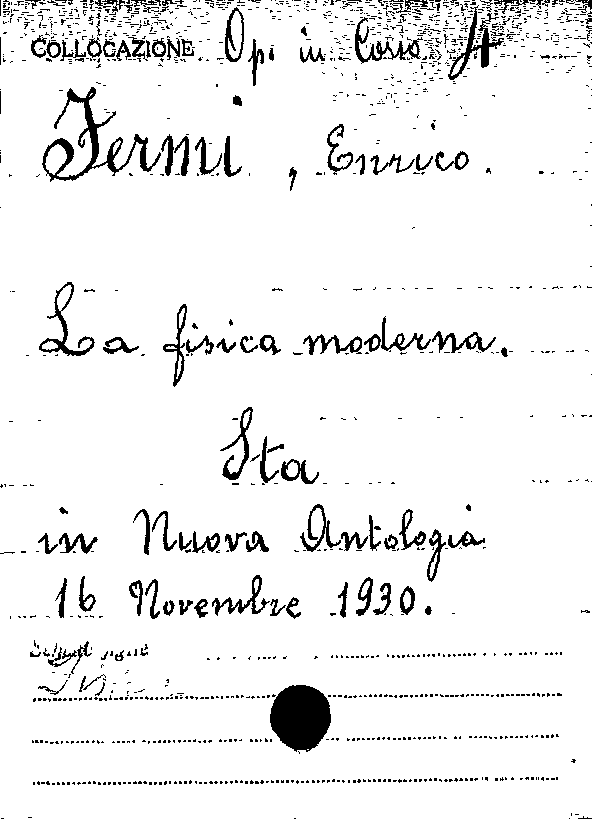 COLLOCAZIONE Op. in Corso 4
Fermi, Enrico.
La fisica moderna.
Sta
in Nuova Antologia
16 Novembre 1930.